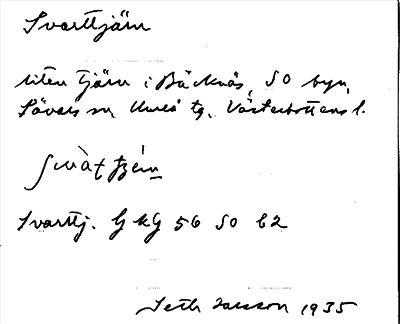 Svarttjärn
liten tjärn i Bäcknäs, SO byn,
Sävars sn Umeå tg. Västerbottens l.
Svarttj. GkG 56 SO b2
Seth Larsson 1935